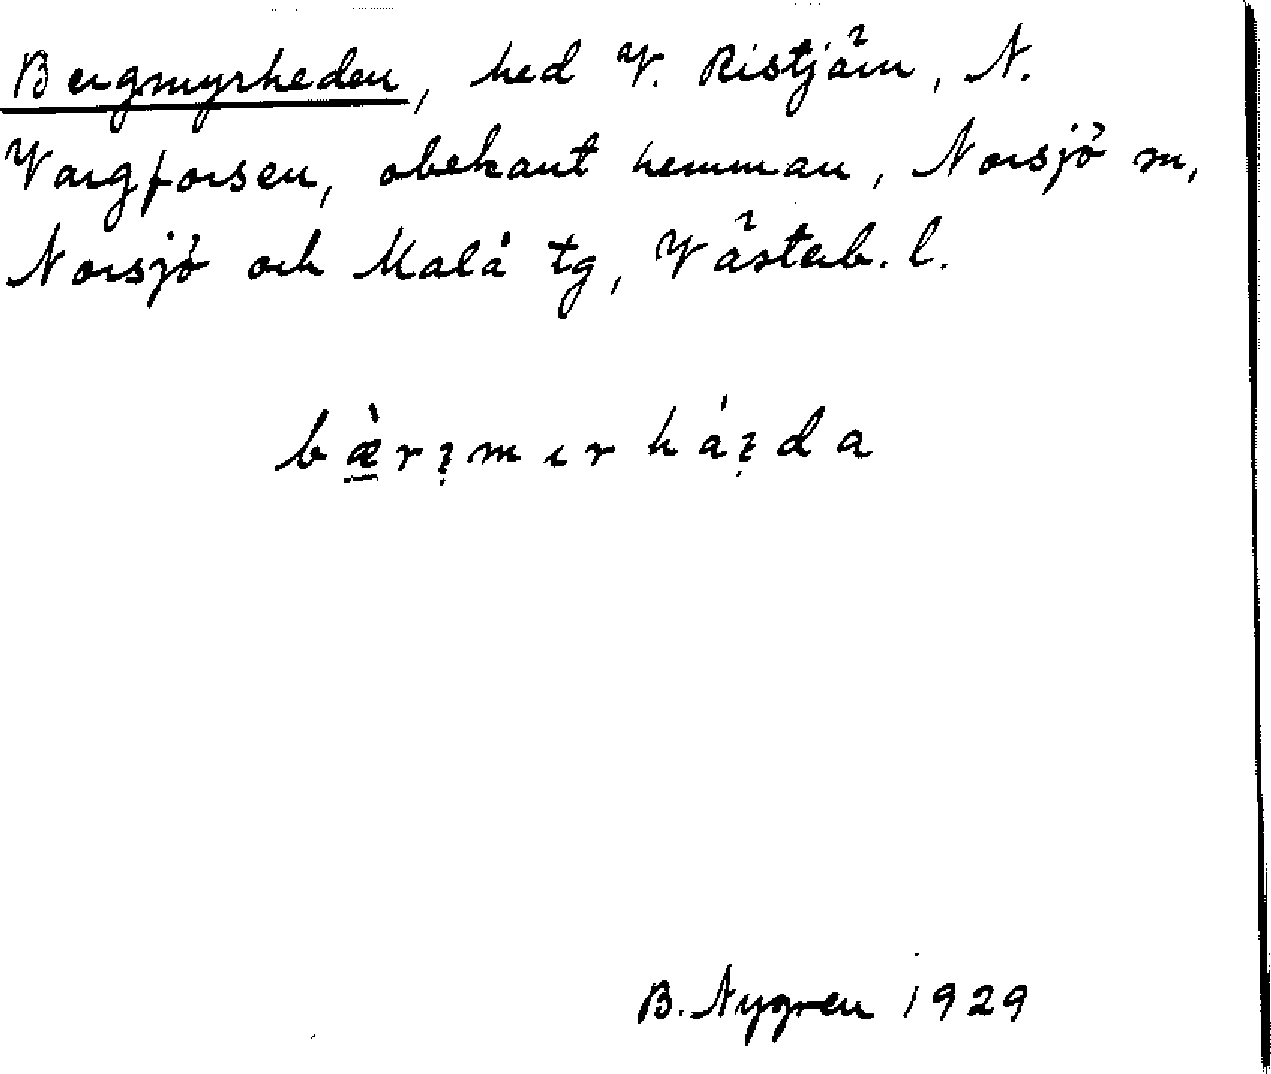 Bergmyrheden, hed V. Ristjärn, N.
Vargforsen, obekant hemman, Norsjö sn,
Norsjö och Malå tg, Västerb. l.
bæ̀rʒmırháʒda
B. Nygren 1929